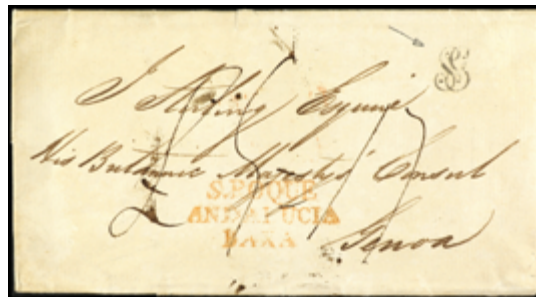 J Sterling Esquire
His Britannic Majestys' Consul
S. ROQUE
ANDALUCIA
BAXA
Genoa